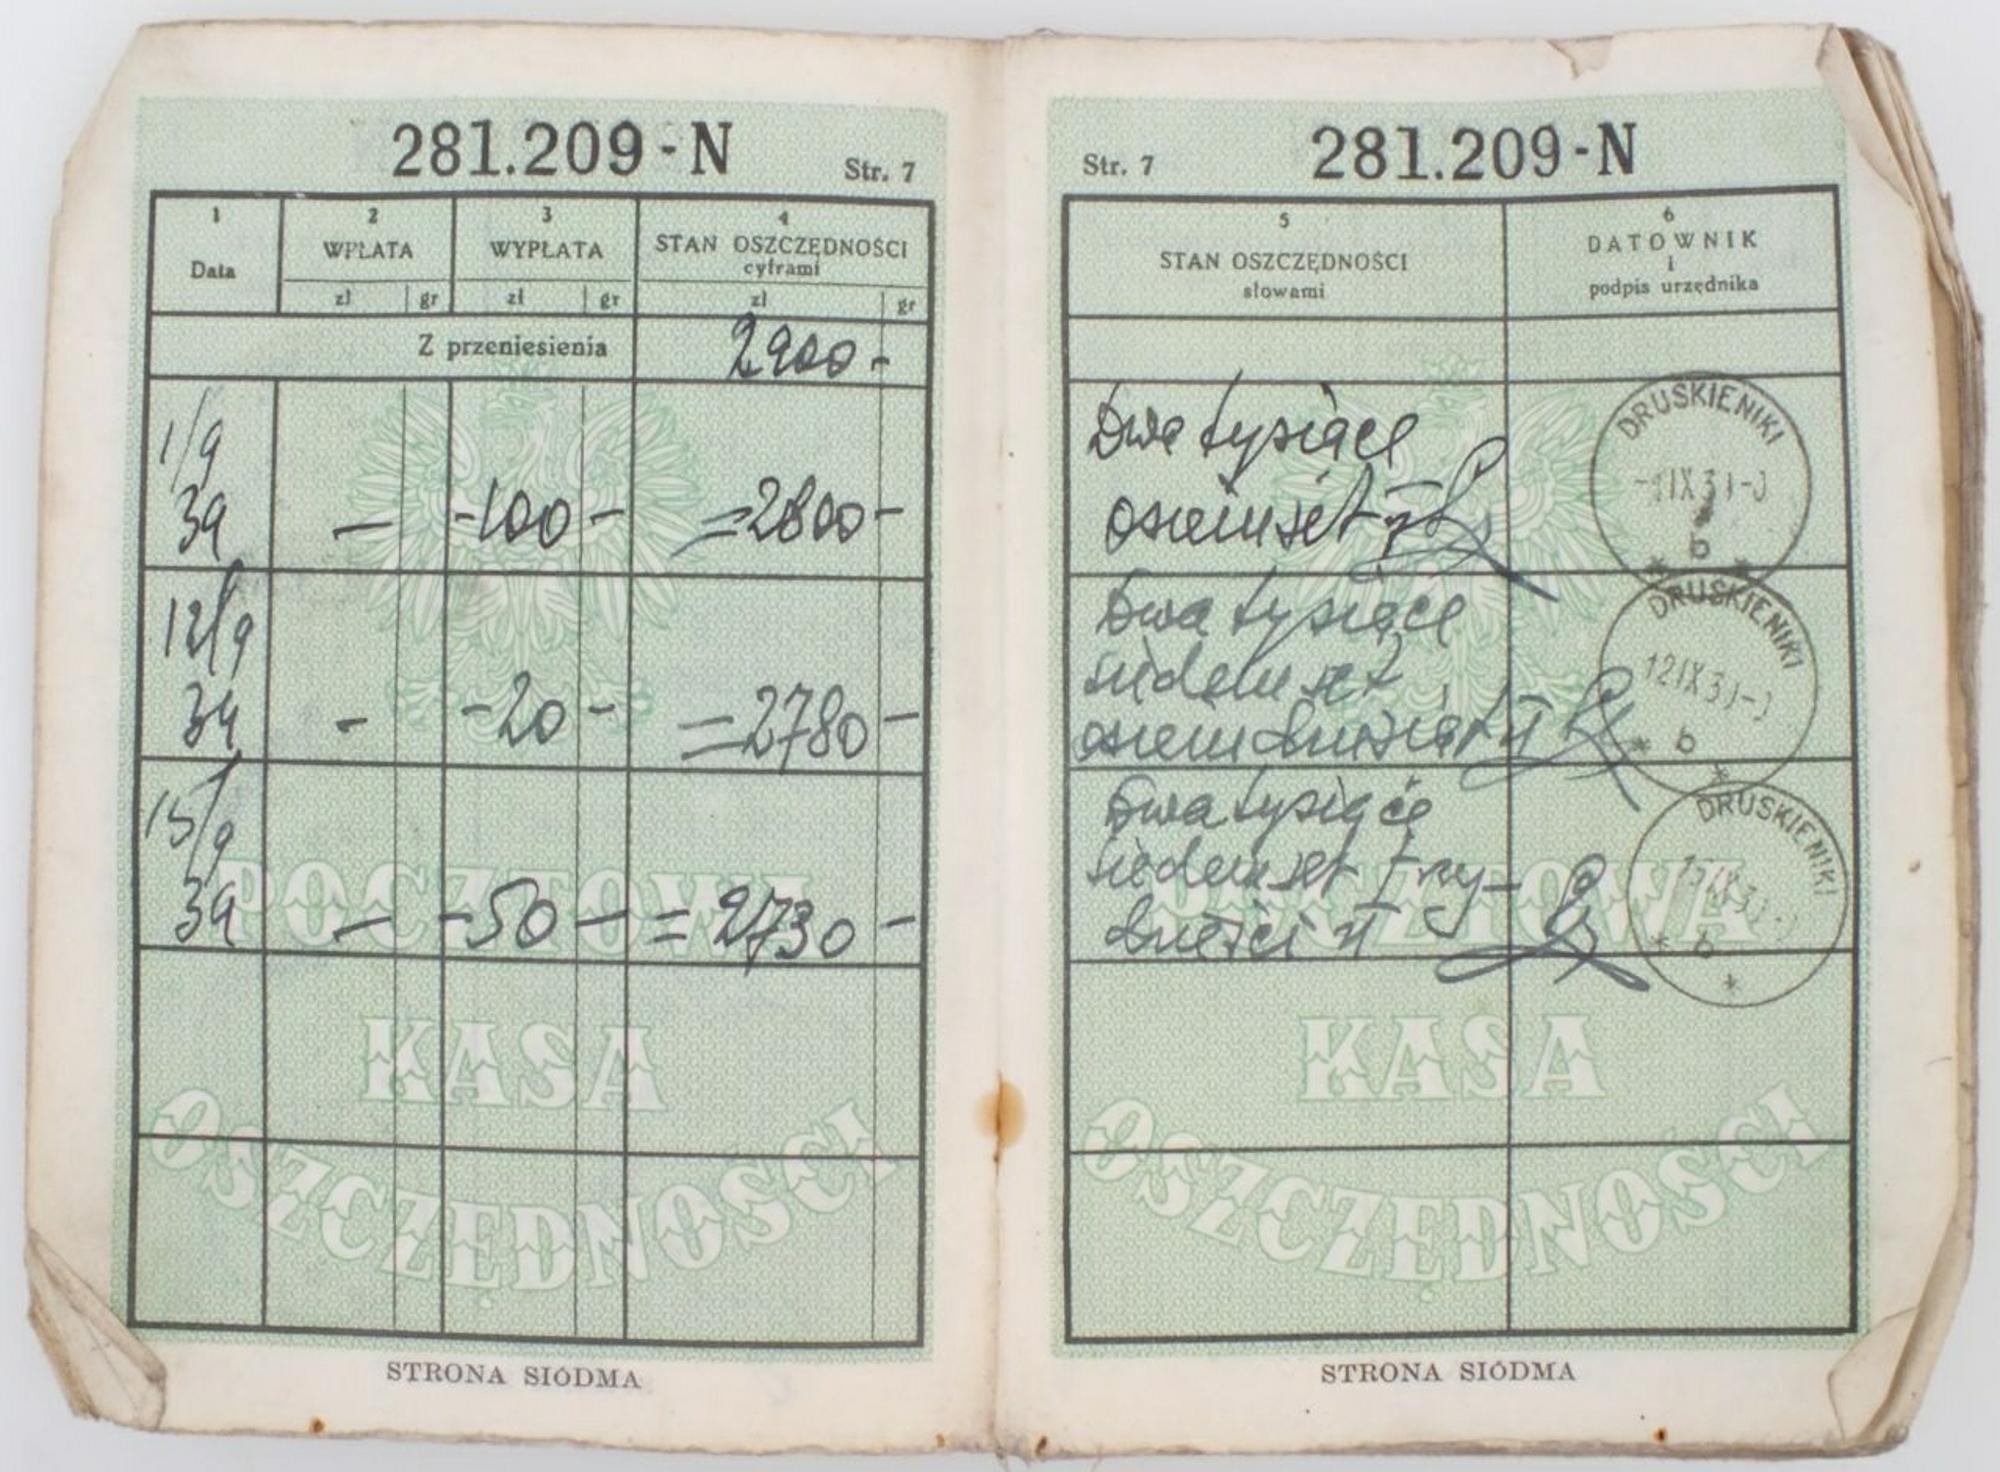 281.209-N
Str. 7
1
Data
2
WPŁATA
zł gr
3
WYPŁATA
zł gr
4
STAN OSZCZĘDNOŚCI
cyframi
zł gr
Z przeniesienia 2900-
1/9
39 — -100- =2800-
12/9
39 - -20- =2780-
15/9
39 — -50- =2730-
POCZTOWA
KASA
OSZCZĘDNOŚCI
STRONA SIÓDMA
Str. 7
281.209-N
5
STAN OSZCZĘDNOŚCI
słowami
6
DATOWNIK
i
podpis urzędnika
Dwa tysiące
osiemset zł
DRUSKIENIKI
b
Dwa tysiące
siedemset
osiemdziesiąt zł
DRUSKIENIKI
12 IX 3
b
Dwa tysiące
siedemset trzy-
dzieści zł
DRUSKIENIKI
b
POCZTOWA
KASA
OSZCZĘDNOŚCI
STRONA SIÓDMA